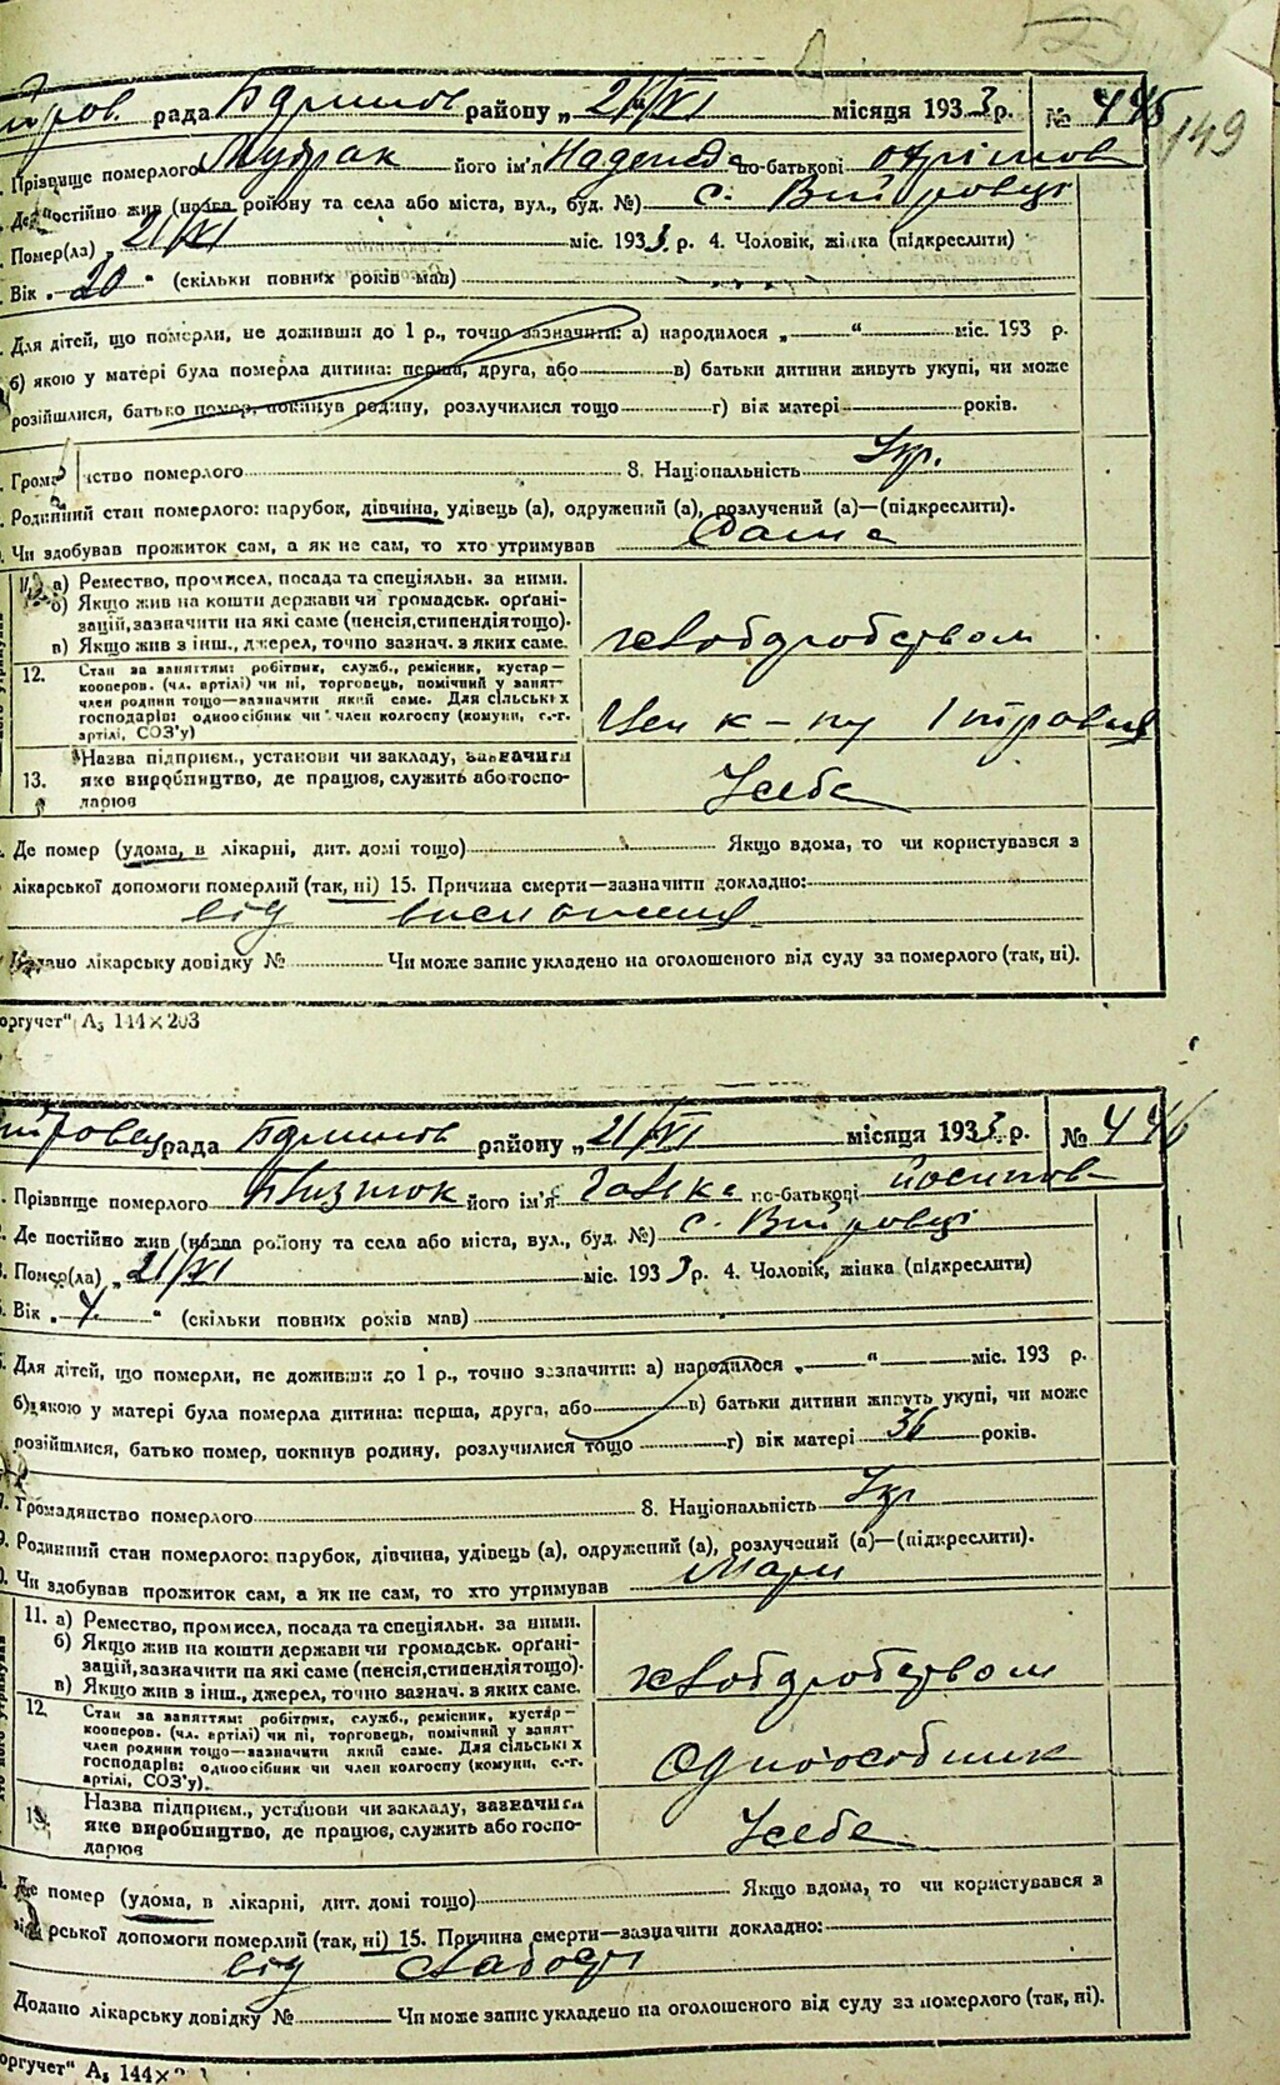 рада районy „ 21/VI місяця 1933 р. № 445
149
Прізвище померлого Мудрак його ім'я Надежда по-батькові
Де постійно жив (назва району та села або міста, вул., буд. №) с.
Помер(ла) „ 21/VI міс. 1933 р. 4. Чоловік, жінка (підкреслити)
Вік „ 20 “ (скільки повних років мав)
Для дітей, що померли, не доживши до 1 р., точно зазначити: а) народилося „ “ міс. 193 р.
б) якою у матері була померла дитина: перша, друга, або в) батьки дитини живуть укупі, чи може
розійшлися, батько помер, покинув родину, розлучилися тощо г) вік матері років.
Громадянство померлого 8. Національність Укр.
Родинний стан померлого: парубок, дівчина, удівець (а), одружений (а), розлучений (а)—(підкреслити).
Чи здобував прожиток сам, а як не сам, то хто утримував Сама
а) Ремество, промисел, посада та спеціяльн. за ними.
б) Якщо жив на кошти держави чи громадськ. органі-
зацій, зазначити на які саме (пенсія, стипендія тощо).
в) Якщо жив з інш., джерел, точно зазнач. з яких саме.
хлібодробством
12. Стан за заняттям: робітник, служб., ремісник, кустар—
кооперов. (чл. артілі) чи ні, торговець, помічний у занят-
член родини тощо—зазначити який саме. Для сільських
господарів: одноосібник чи член колгоспу (комуни, с.-г.
артілі, СОЗ'у)
Член к-пу 1 травня
13. Назва підприєм., установи чи закладу, зазначити
яке виробництво, де працює, служить або госпо-
дарює
У себе
Де помер (удома, в лікарні, дит. домі тощо) Якщо вдома, то чи користувався з
лікарської допомоги померлий (так, ні) 15. Причина смерти—зазначити докладно:
від виснаження
Додано лікарську довідку № Чи може запис укладено на оголошеного від суду за померлого (так, ні).
оргучет“ А₅ 144×203
рада районy „ 21/VI місяця 1933 р. № 446
Прізвище померлого його ім'я Ганка по-батькові Йосипов
Де постійно жив (назва району та села або міста, вул., буд. №) с.
Помер(ла) „ 21/VI міс. 1933 р. 4. Чоловік, жінка (підкреслити)
Вік „ “ (скільки повних років мав)
Для дітей, що померли, не доживши до 1 р., точно зазначити: а) народилося „ “ міс. 193 р.
б) якою у матері була померла дитина: перша, друга, або в) батьки дитини живуть укупі, чи може
розійшлися, батько помер, покинув родину, розлучилися тощо г) вік матері 36 років.
7. Громадянство померлого 8. Національність Укр
9. Родинний стан померлого: парубок, дівчина, удівець (а), одружений (а), розлучений (а)—(підкреслити).
Чи здобував прожиток сам, а як не сам, то хто утримував Мари
11. а) Ремество, промисел, посада та спеціяльн. за ними.
б) Якщо жив на кошти держави чи громадськ. органі-
зацій, зазначити на які саме (пенсія, стипендія тощо).
в) Якщо жив з інш., джерел, точно зазнач. з яких саме.
хлібодробством
12. Стан за заняттям: робітник, служб., ремісник, кустар—
кооперов. (чл. артілі) чи ні, торговець, помічний у занят-
член родини тощо—зазначити який саме. Для сільських
господарів: одноосібник чи член колгоспу (комуни, с.-г.
артілі, СОЗ'у).
Одноособник
13. Назва підприєм., установи чи закладу, зазначити
яке виробництво, де працює, служить або госпо-
дарює
У себе
Де помер (удома, в лікарні, дит. домі тощо) Якщо вдома, то чи користувався з
лікарської допомоги померлий (так, ні) 15. Причина смерти—зазначити докладно:
від слабости
Додано лікарську довідку № Чи може запис укладено на оголошеного від суду за померлого (так, ні).
оргучет“ А₅ 144×2